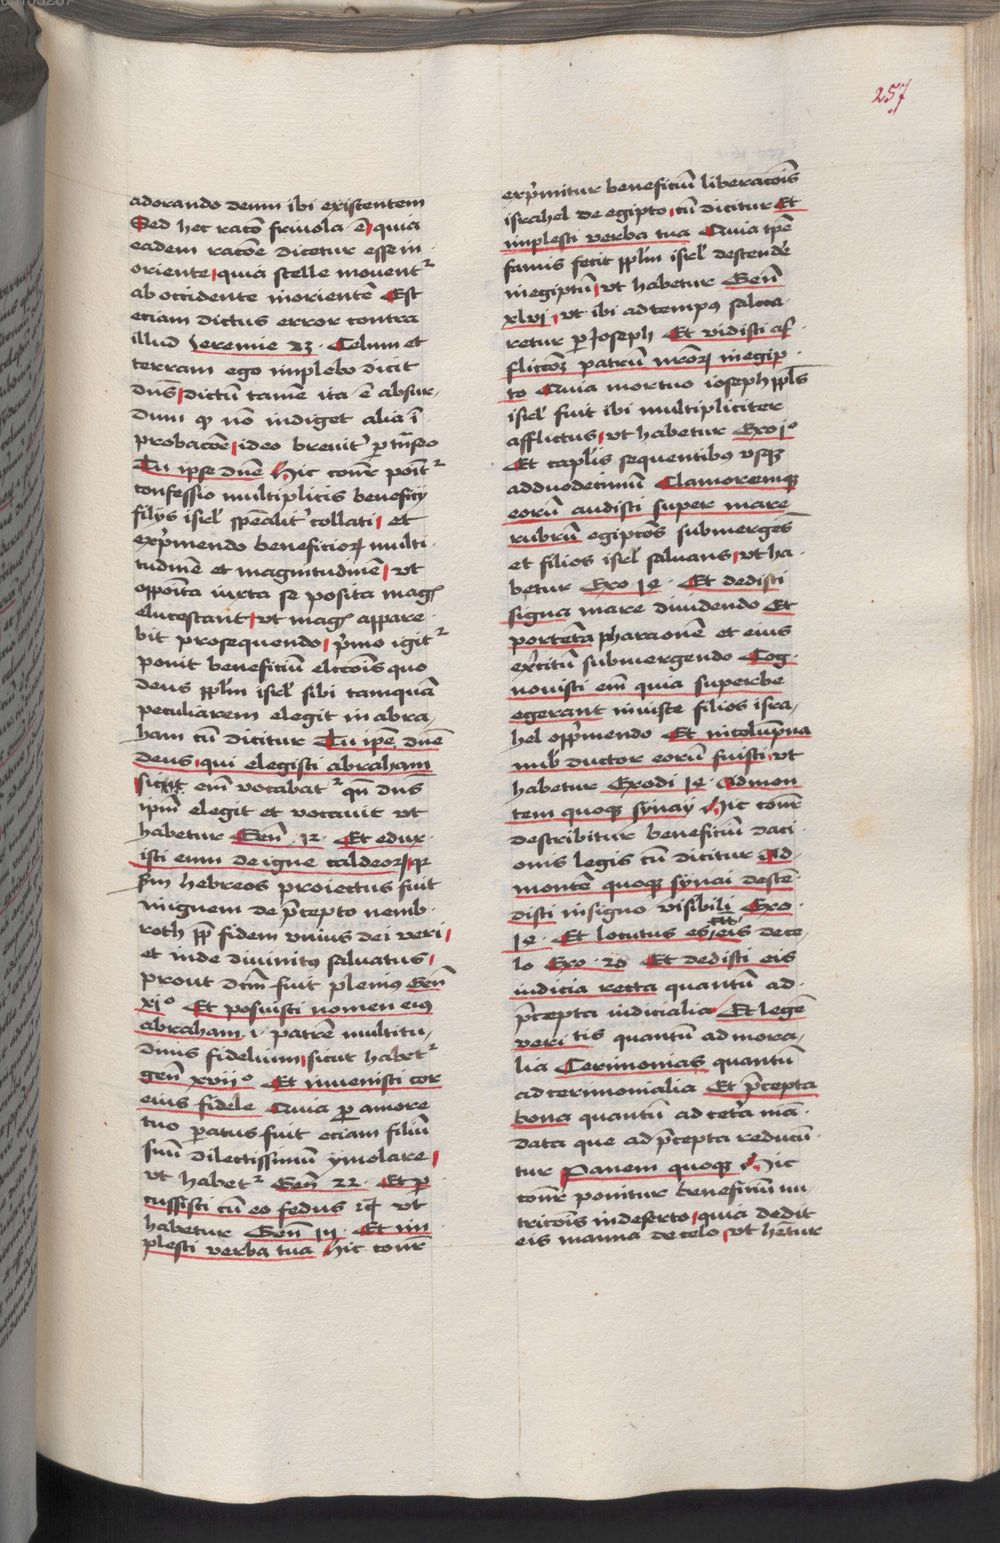 257
adorando deum ibi existentem
Sed hec racō friuola ē quia
eadem racōe dicetur esse in
oriente quia stelle mouent᷑
ab occidente in orientē Est
eciam dictus error contra
illud Jeremie 23 · Celum et
terram ego implebo dicit
dn̄s dictū tamē ita ē absur-
dum qꝫ nō indiget alia ī
probacōe ideo breuit᷑ ꝑtn̄seo
Tu ipse dn̄e Hic cōnr̄ poīt᷑
confessio multiplicis beneficij
filijs isrl̄ spēalit᷑ collati et
exp̄mendo beneficioꝝ multi-
tudinē et magnitudinē vt
oppoīta iuxta se posita mag᷑
elucescant vt mag᷑ appare-
bit prosequendo p̄mo igit᷑
ponit beneficiū elccōis quo
deus ppl̄m isrl̄ sibi tamquā
peculiarem elegit in abra-
ham cū dicitur Tu ip̄e dn̄e
deus qui elegisti abraham
sic eīm vocabat᷑ qn̄ dn̄s
ipm̄ elegit et vocauit vt
habetur Gen̄ 12 · Et edux-
isti eum de igne caldeoꝝ qꝛ
sm̄ hebreos proiectus fuit
in ignem de p̄cepto nemb-
roth pp̄ fidem vnius dei veri
et inde diuinitꝰ saluatus
prout dcm̄ fuit plenius Gen̄
xjº Et posuisti nomen eiꝰ
abraham .i. patrē multitu-
dinis fidelium sicut habet᷑
gen̄ xvijº Et inuenisti cor
eius fidele Quia ꝑ amore
tuo ꝑatus fuit eciam filiū
suū dilectissimū ymolare
vt habet᷑ Gen̄ 22 · Et ꝑ-
cussisti cū eo fedus vt
habetur Gen̄ Et im-
plesti verba tua Hic cōnr̄
exp̄mitur beneficiū liberacōis
israhel de egipto cū dicitur Et
implesti verba tua Quia tp̄e
famis fecit ppl̄m isrl̄ descendē
in egiptū vt habetur Gen̄
xlvj vt ibi ad tempꝰ salua-
retur ꝑ Joseph Et vidisti af-
fliccōꝫ patrū nr̄oꝝ in egip-
to Quia mortuo ioseph ppl̄s
isrl̄ fuit ibi multipliciter
afflictus vt habetur Exo jº
Et capl̄is sequentibꝰ vsqꝫ
ad duodecimū Clamoremqꝫ
eorū audisti super mare
rubrū egipcōs submergēs
et filios isrl̄ saluans vt ha-
betur Exo 14 · Et dedisti
signa mare diuidendo Et
portēta pharaonē et eius
ex̄citū submergendo Cog-
nouisti eīm quia superbe
egerant iniuste filios isra-
hel opp̄mendo Et in colūpna
nub᷑ ductor eorū fuisti vt
habetur Exodi 14 · Ad mon
tem quoqꝫ synay Hic cōnr̄
describitur beneficiū daci-
onis legis cū dicitur Ad
montē quoqꝫ synai descē-
disti in signo visibili Exo ·
19 · Et locutus es cū eis de ce-
lo Exo · 20 Et dedisti eis
iudicia recta quantū ad
p̄cepta iudicialia Et legē
veri tis quantū ad mora-
lia Cerimonias quantū
ad cerimonialia Et p̄cepta
bona quantū ad cet̄a mā-
data que ad p̄cepta reducū-
tur Panem quoqꝫ Hic
cōnr̄ ponitur beneficiū nu-
tricōis in deserto quia dedit
eis manna de celo vt hētur